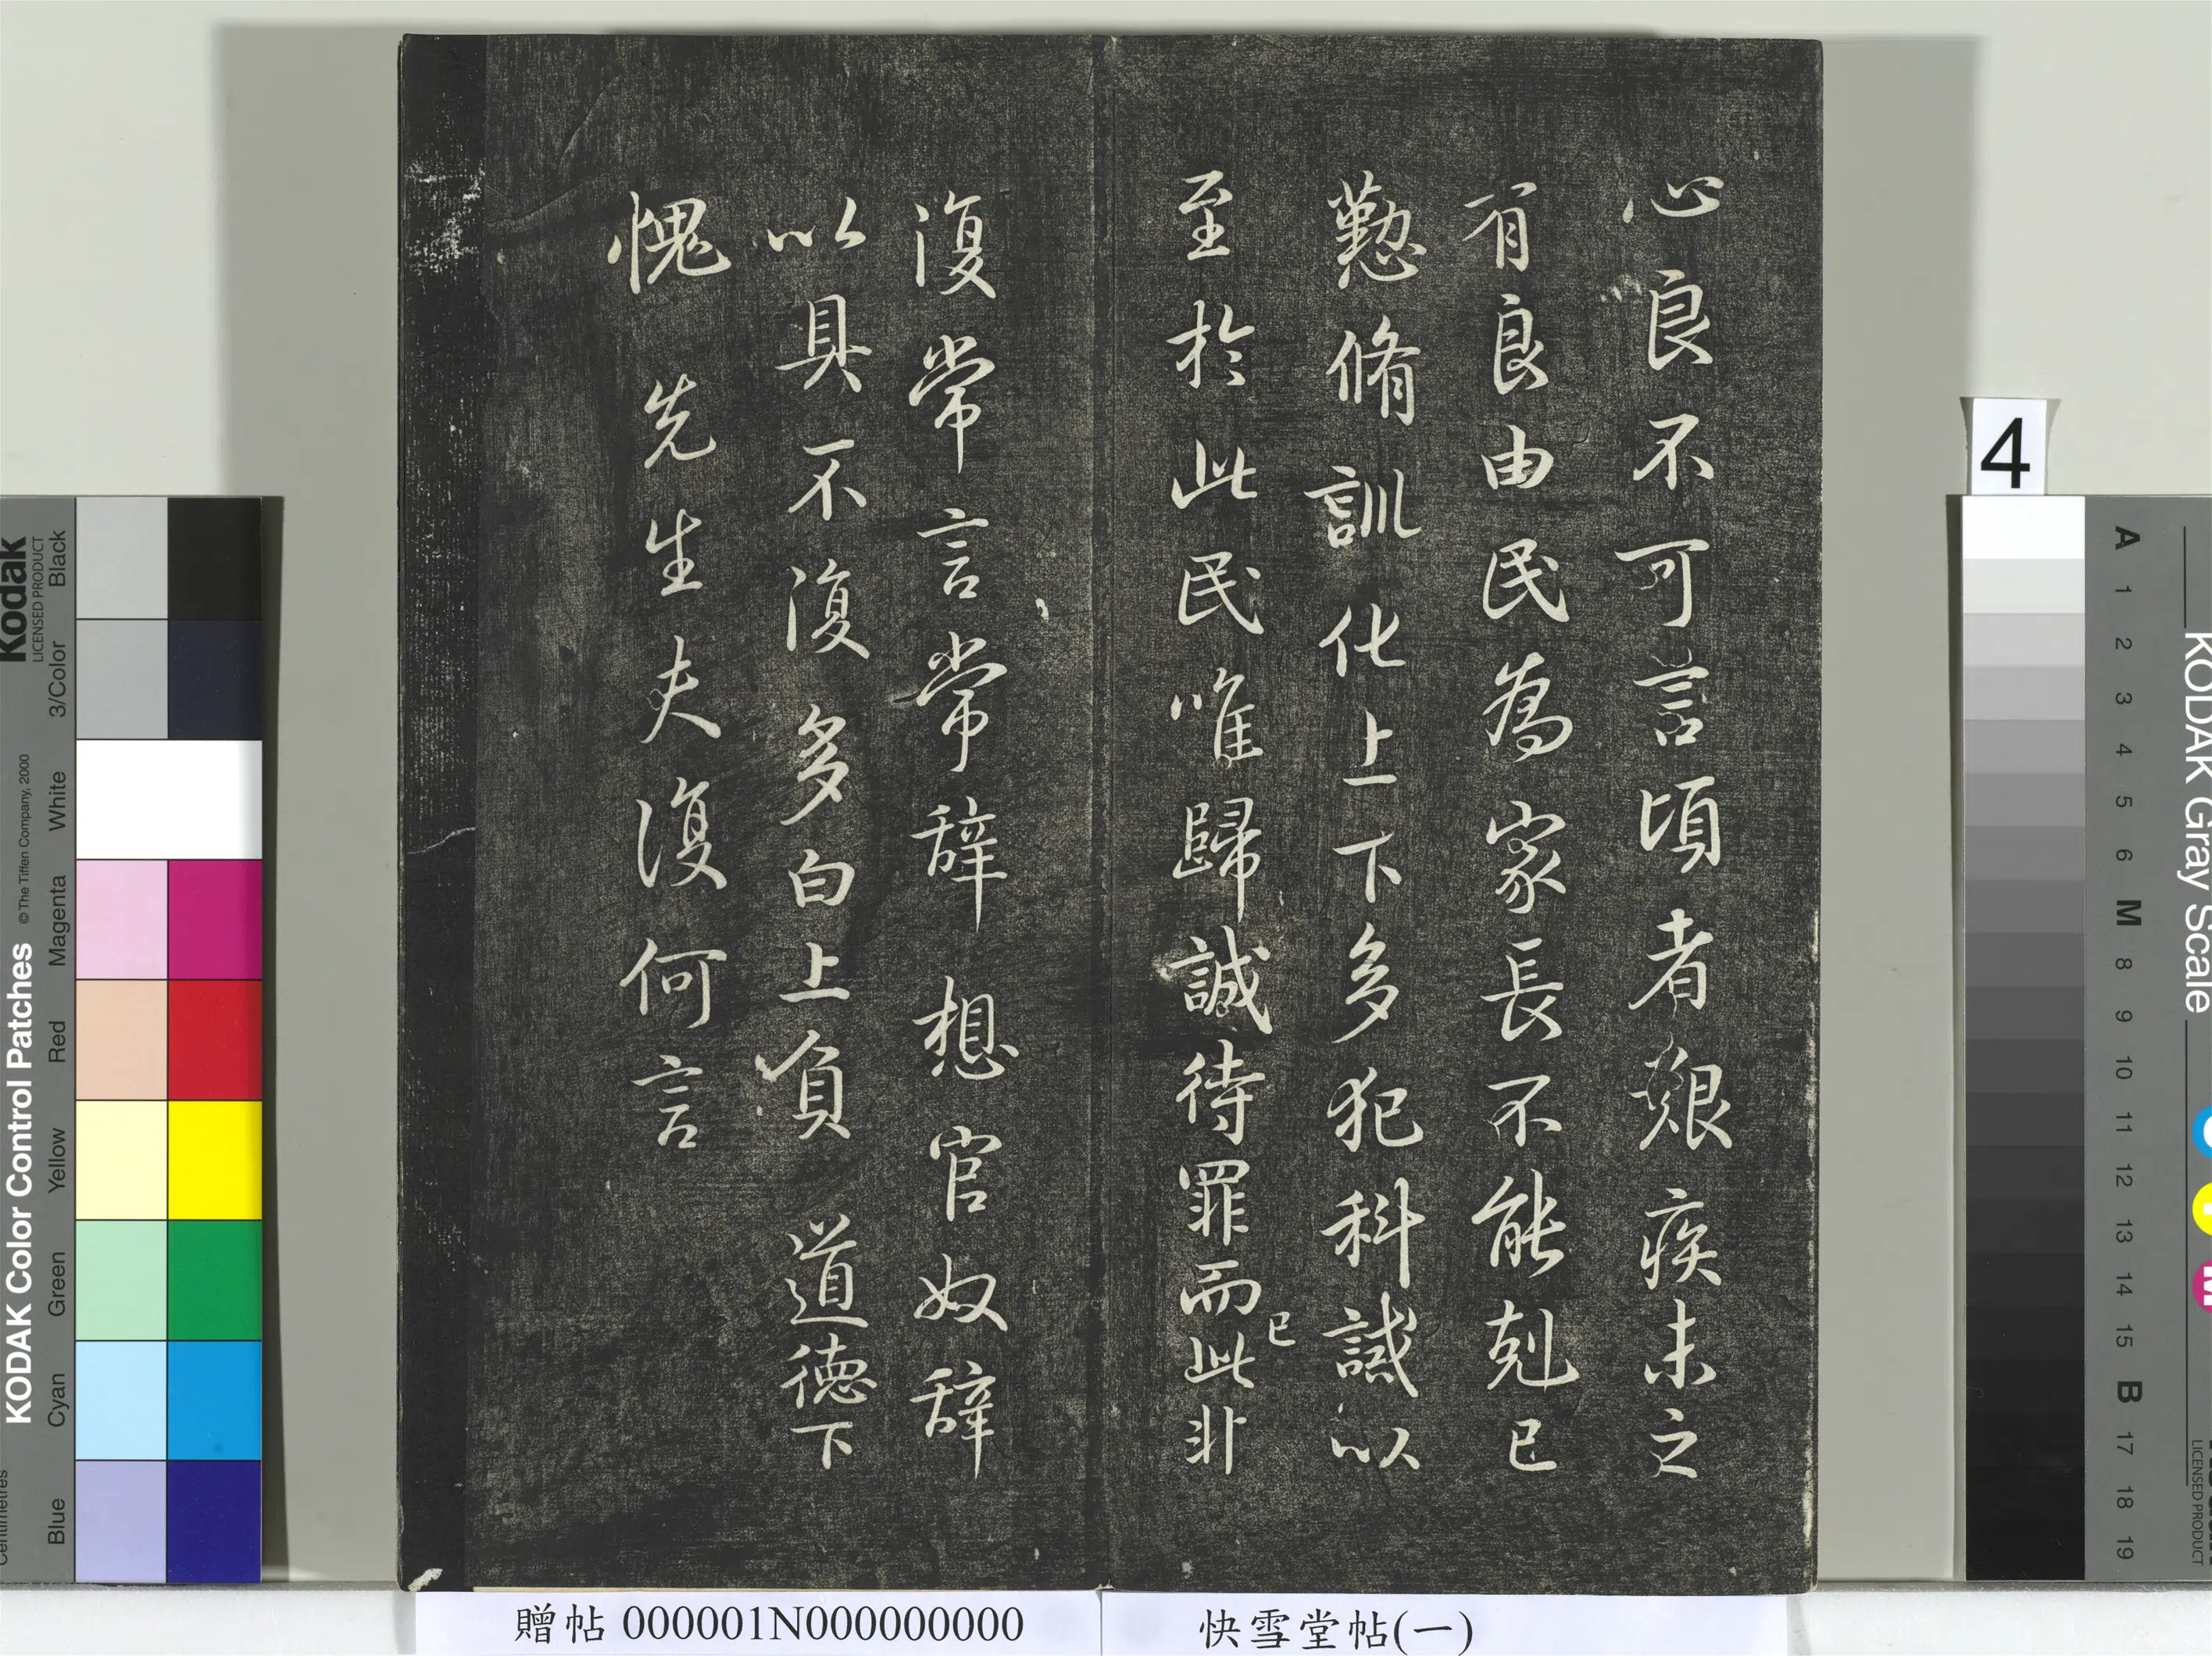 心良不可言頃者艱疾未之
有良由民為家長不能剋己
懃脩訓化上下多犯科誡以
至於此民唯歸誠待罪而此非
已
復常言常辭想官奴辭
以具不復多白上負道德下
愧先生夫復何言
贈帖 000001N000000000
快雪堂帖(一)
4
KODAK Color Control Patches
© The Tiffen Company, 2000
Kodak
LICENSED PRODUCT
Blue
Cyan
Green
Yellow
Red
Magenta
White
3/Color
Black
KODAK Gray Scale
A 1 2 3 4 5 6 M 8 9 10 11 12 13 14 15 B 17 18 19
LICENSED PRODUCT